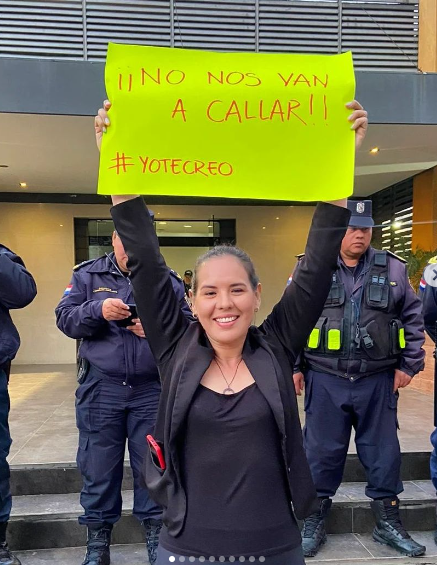 ¡¡NO NOS VAN
A CALLAR!!
#YOTECREO